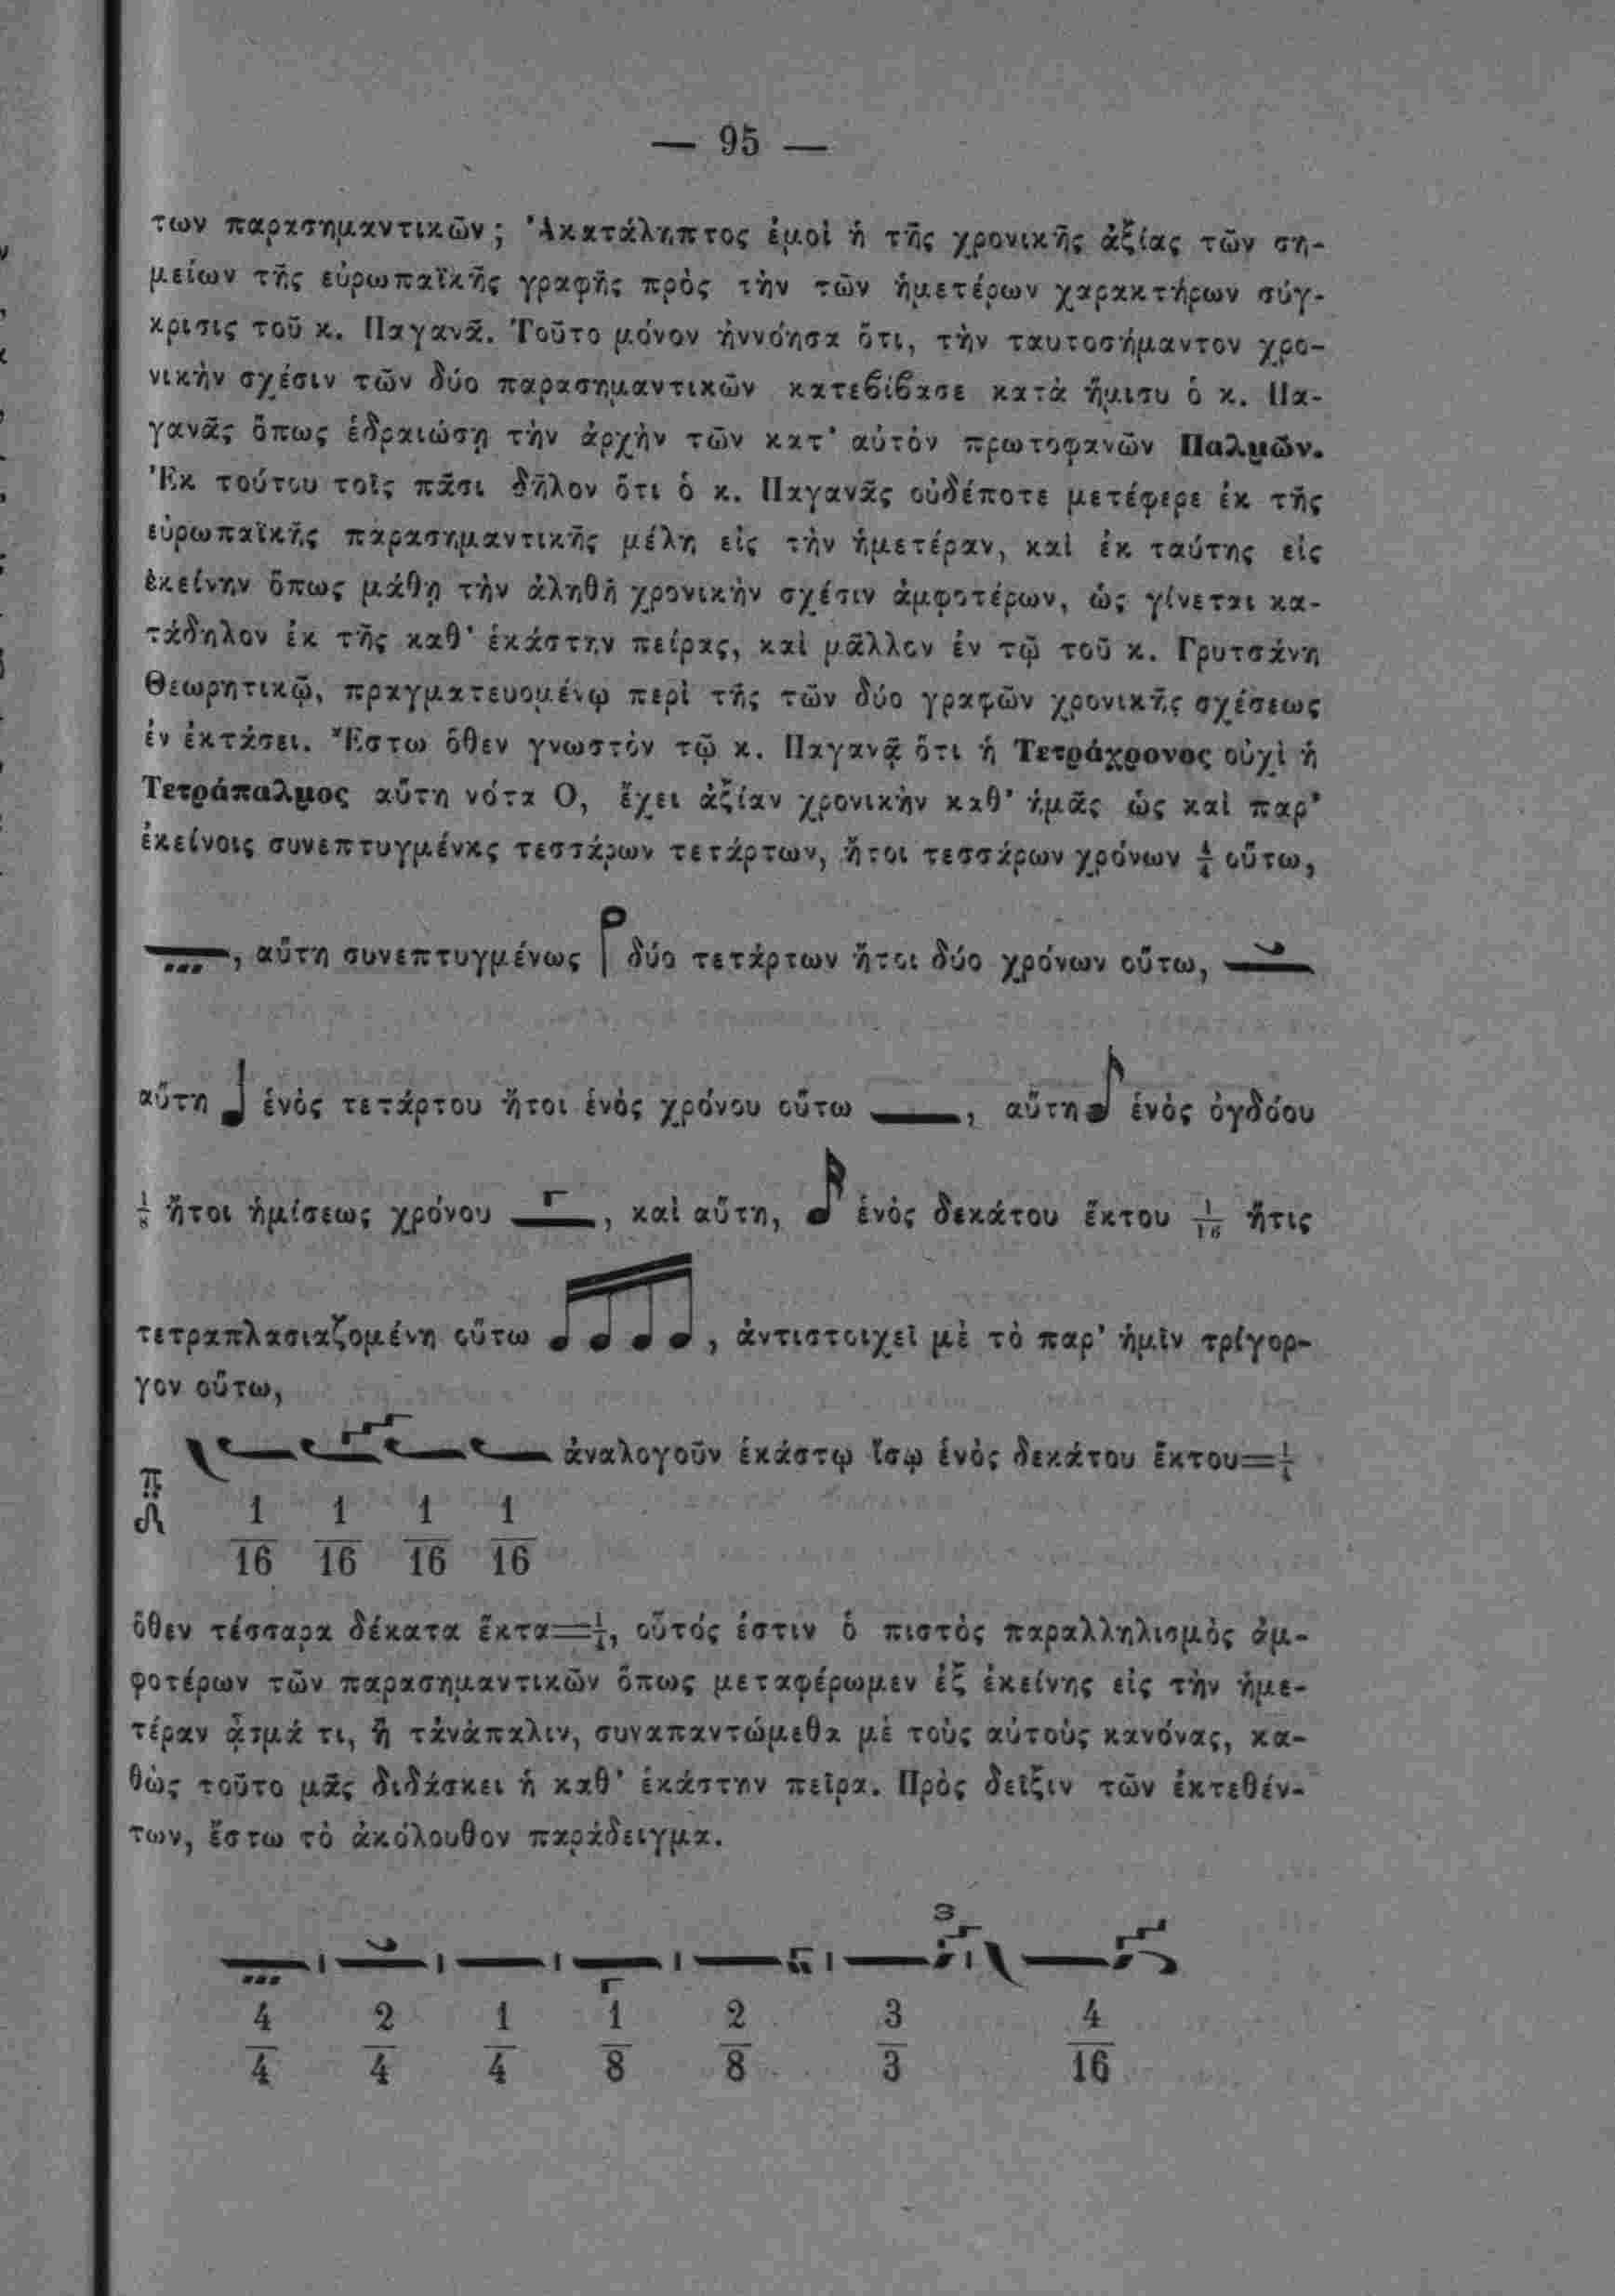 — 95 —
των παρασημαντικῶν; Ἀκατάληπτος ἐμοὶ ἡ τῆς χρονικῆς ἀξίας τῶν ση-
μείων τῆς εὐρωπαϊκῆς γραφῆς πρὸς τὴν τῶν ἡμετέρων χαρακτήρων σύγ-
κρισις τοῦ κ. Παγανᾶ. Τοῦτο μόνον ἠννόησα ὅτι, τὴν ταυτοσήμαντον χρο-
νικὴν σχέσιν τῶν δύο παρασημαντικῶν κατεβίβασε κατὰ ἥμισυ ὁ κ. Πα-
γανᾶς ὅπως ἑδραιώσῃ τὴν ἀρχὴν τῶν κατ' αὐτὸν πρωτοφανῶν Παλμῶν.
Ἐκ τούτου τοῖς πᾶσι δῆλον ὅτι ὁ κ. Παγανᾶς οὐδέποτε μετέφερε ἐκ τῆς
εὐρωπαϊκῆς παρασημαντικῆς μέλη εἰς τὴν ἡμετέραν, καὶ ἐκ ταύτης εἰς
ἐκείνην ὅπως μάθῃ τὴν ἀληθῆ χρονικὴν σχέσιν ἀμφοτέρων, ὡς γίνεται κα-
τάδηλον ἐκ τῆς καθ' ἑκάστην πείρας, καὶ μᾶλλον ἐν τῷ τοῦ κ. Γρυτσάνη
Θεωρητικῷ, πραγματευομένῳ περὶ τῆς τῶν δύο γραφῶν χρονικῆς σχέσεως
ἐν ἐκτάσει. Ἔστω ὅθεν γνωστὸν τῷ κ. Παγανᾷ ὅτι ἡ Τετράχρονος οὐχὶ ἡ
Τετράπαλμος αὕτη νότα Ο, ἔχει ἀξίαν χρονικὴν καθ' ἡμᾶς ὡς καὶ παρ'
ἐκείνοις συνεπτυγμένως τεσσάρων τετάρτων, ἤτοι τεσσάρων χρόνων 4/4 οὕτω,
, αὕτη συνεπτυγμένως δύο τετάρτων ἤτοι δύο χρόνων οὕτω,
αὕτη ἑνὸς τετάρτου ἤτοι ἑνὸς χρόνου οὕτω , αὕτη ἑνὸς ὀγδόου
1/8 ἤτοι ἡμίσεως χρόνου , καὶ αὕτη, ἑνὸς δεκάτου ἕκτου 1/16 ἥτις
τετραπλασιαζομένη οὕτω , ἀντιστοιχεῖ μὲ τὸ παρ' ἡμῖν τρίγορ-
γον οὕτω,
ἀναλογοῦν ἑκάστῳ ἴσῳ ἑνὸς δεκάτου ἕκτου=1/4
π
1/16 1/16 1/16 1/16
ὅθεν τέσσαρα δέκατα ἕκτα=1/4, οὗτός ἐστιν ὁ πιστὸς παραλληλισμὸς ἀμ-
φοτέρων τῶν παρασημαντικῶν ὅπως μεταφέρωμεν ἐξ ἐκείνης εἰς τὴν ἡμε-
τέραν ᾆσμά τι, ἢ τἀνάπαλιν, συναπαντώμεθα μὲ τοὺς αὐτοὺς κανόνας, κα-
θὼς τοῦτο μᾶς διδάσκει ἡ καθ' ἑκάστην πεῖρα. Πρὸς δεῖξιν τῶν ἐκτεθέν-
των, ἔστω τὸ ἀκόλουθον παράδειγμα.
3
4/4 2/4 1/4 1/8 2/8 3/3 4/16